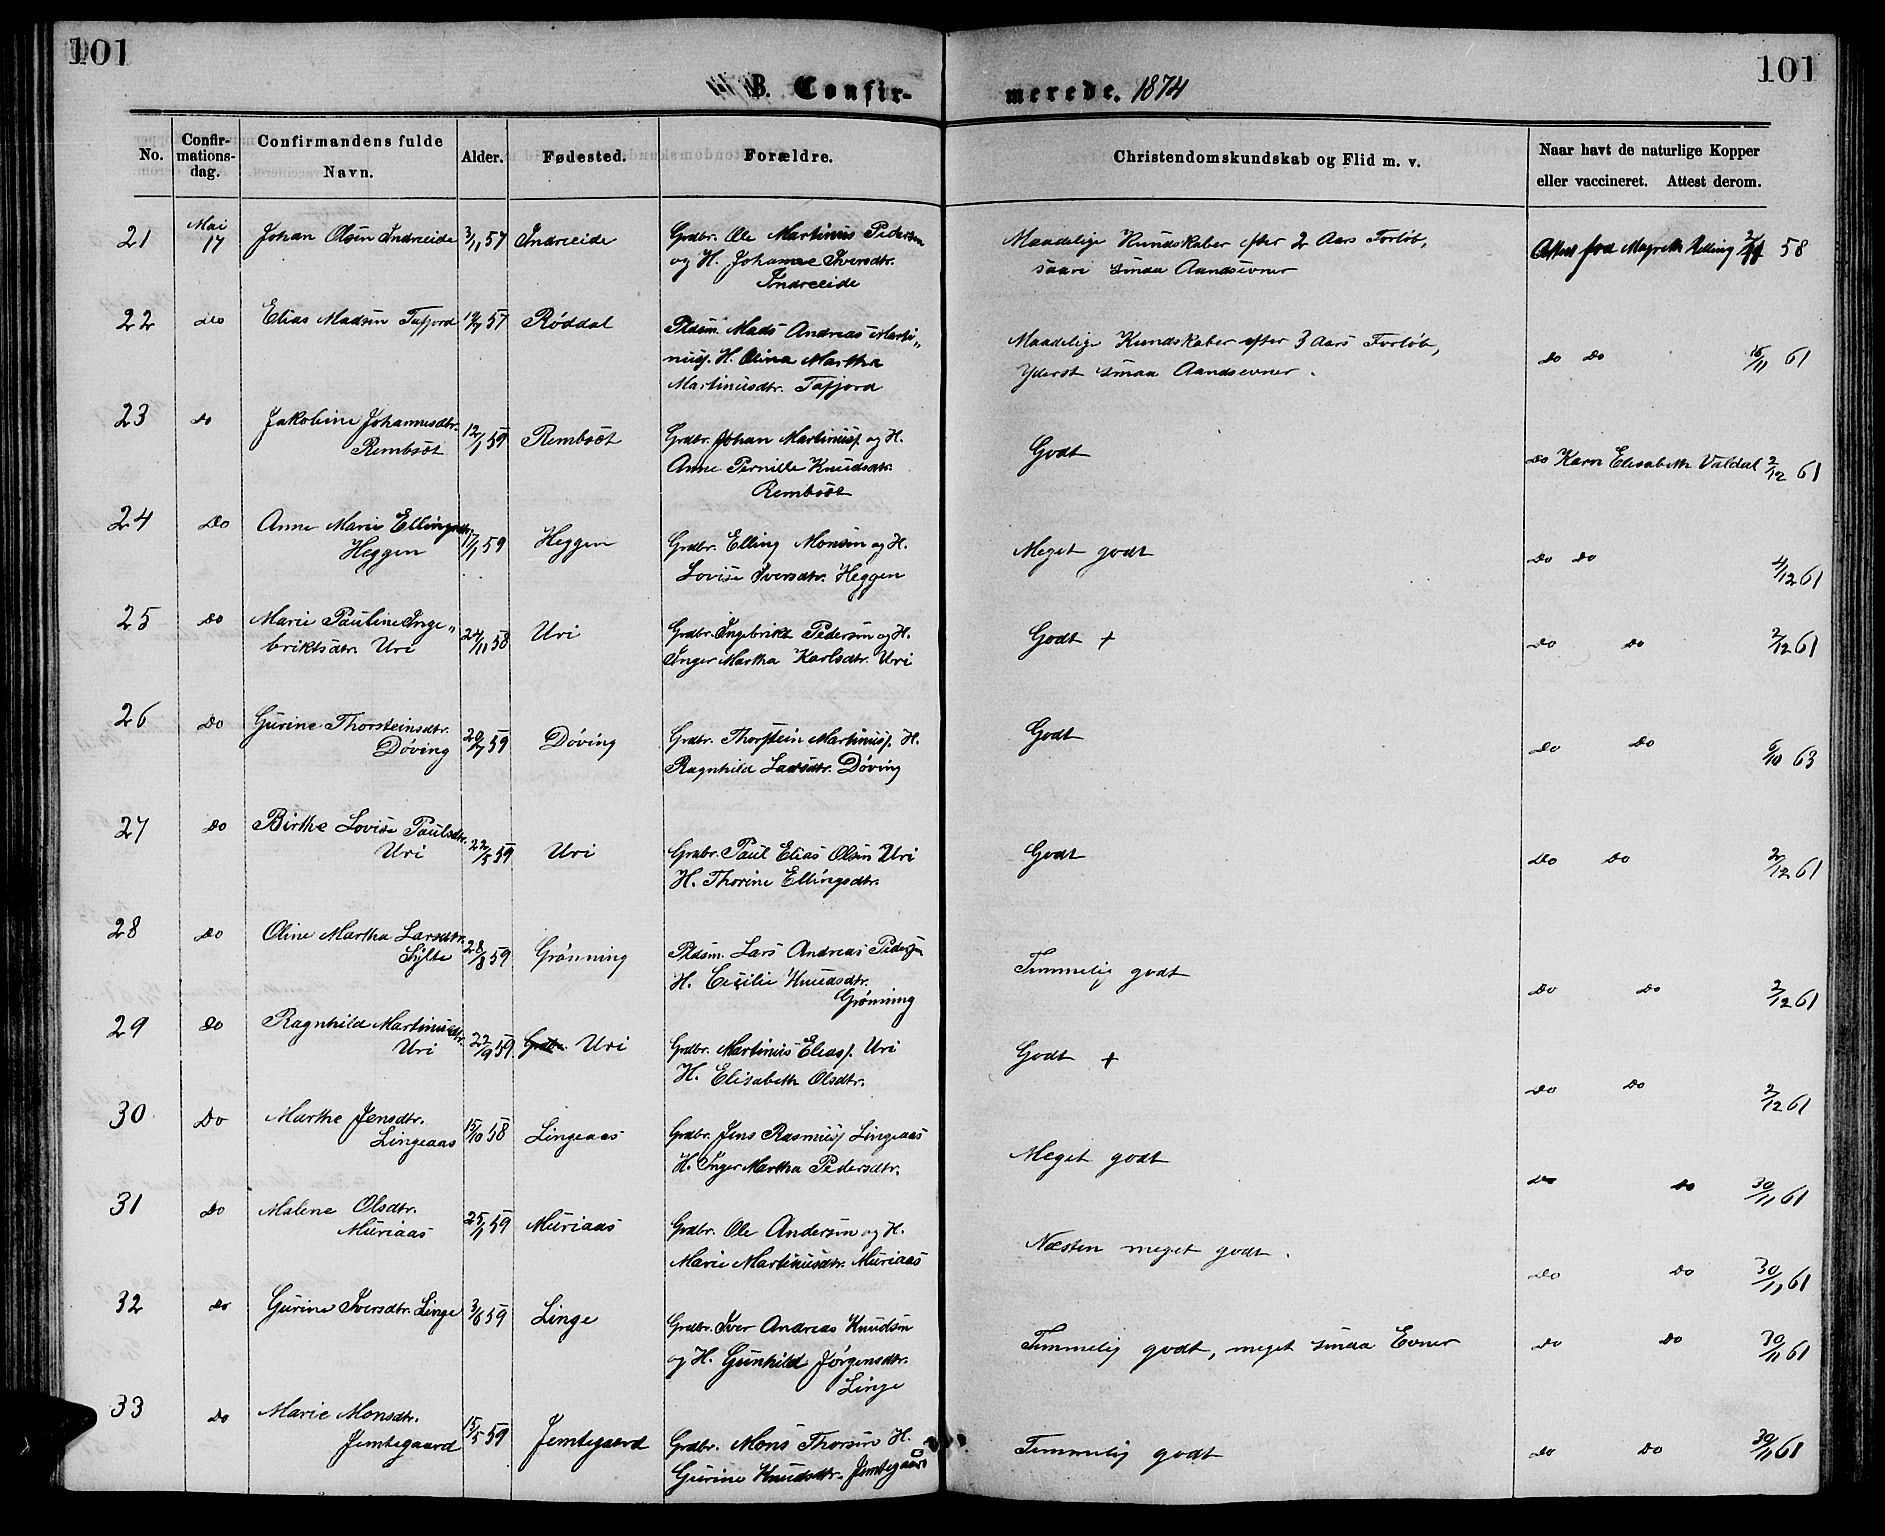 101
101
B. Confir-
merede. 1874
No.
Confir-
mations-
dag.
Confirmandens fulde
Navn.
Alder.
Fødested.
Forældre.
Christendomskundskab og Flid m. v.
Naar havt de naturlige Kopper
eller vaccineret. Attest derom.
21 Mai 17 Johan Olsen Indreeide 3/11 57 Indreeide Grdbr. Ole Martinus Pedersen
og H. Johanne Iversdtr.
Indreeide
Maadelige Kundskaber efter 2 Aars Forløb,
saare smaa Aandsevner
Attest fra Magrethe Relling 58
22 do Elias Madsen Tafjord 57 Røddal Pldsm. Mads Andreas Marti-
nusf. H. Olina Martha
Martinusdtr. Tafjord
Maadelige Kundskaber efter 3 Aars Forløb,
Yderst smaa Aandsevner.
do do 16/11 61
23 do Jakobine Johannesdtr.
Rembsøt
12/1 59 Rembsøt Grdbr. Johan Martinusf. og H.
Anne Pernille Knudsdtr.
Rembsøt
Godt
do Karn Elisabeth Valdal 2/12 61
24 Do Anne Marie Ellingsdtr.
Heggen
17/1 59 Heggen Grdbr. Elling Monsen og H.
Lovise Iversdtr. Heggen
Meget godt
do do 4/12 61
25 Do Marie Pauline Inge-
briktsdtr. Uri
24/11 58 Uri Grdbr. Ingebrikt Pedersen og H.
Inger Martha Karlsdtr. Uri
Godt +
do do 2/12 61
26 Do Gurine Thorsteinsdtr.
Døving
20/7 59 Døving Grdbr. Thorstein Martinusf. H.
Ragnhild Larsdtr. Døving
Godt
do Do 6/10 63
27 Do Birthe Lovise Paulsdtr.
Uri
22/5 59 Uri Grdbr. Paul Elias Olsen Uri
H. Thorine Ellingsdtr.
Godt
Do Do 2/12 61
28 Do Oline Martha Larsdtr.
Sylte
28/8 59 Grønning Pldsm. Lars Andreas Pedersen
H. Cecilie Knudsdtr.
Grønning
Temmelig godt
Do Do 2/12 61
29 do Ragnhild Martinusdtr.
Uri
22/9 59 Uri Grdbr. Martinus Eliasf. Uri
H. Elisabeth Olsdtr.
Godt +
Do Do 2/12 61
30 Do Marthe Jensdtr.
Lingeaas
15/10 58 Lingeaas Grdbr. Jens Rasmusf. Lingeaas
H. Inger Martha Pedersdtr.
Meget godt
Do Do 30/11 61
31 Do Malene Olsdtr.
Muriaas
25/1 59 Muriaas Grdbr. Ole Andersen og H.
Marie Martinusdtr. Muriaas
Næsten meget godt.
Do Do 30/11 61
32 Do Gurine Iversdtr. Linge 3/8 59 Linge Grdbr. Iver Andreas Knudsen
og H. Gunhild Jørgensdtr.
Linge
Temmelig godt, meget smaa Evner
Do Do 30/11 61
33 Do Marie Monsdtr.
Jemtegaard
15/5 59 Jemtegaard Grdbr. Mons Thorsen H.
Gurine Knudsdtr. Jemtegaard
Temmelig godt
do Do 30/11 61